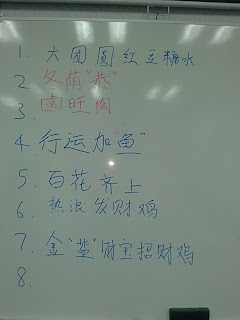 1. 大团圆红豆糖水
2. 冬荫"恭"
3. 卤旺肉
4. 行运加"鱼"
5. 百花齐上
6. 热浪发财鸡
7. 金"盐"财宝招财鸡
8.